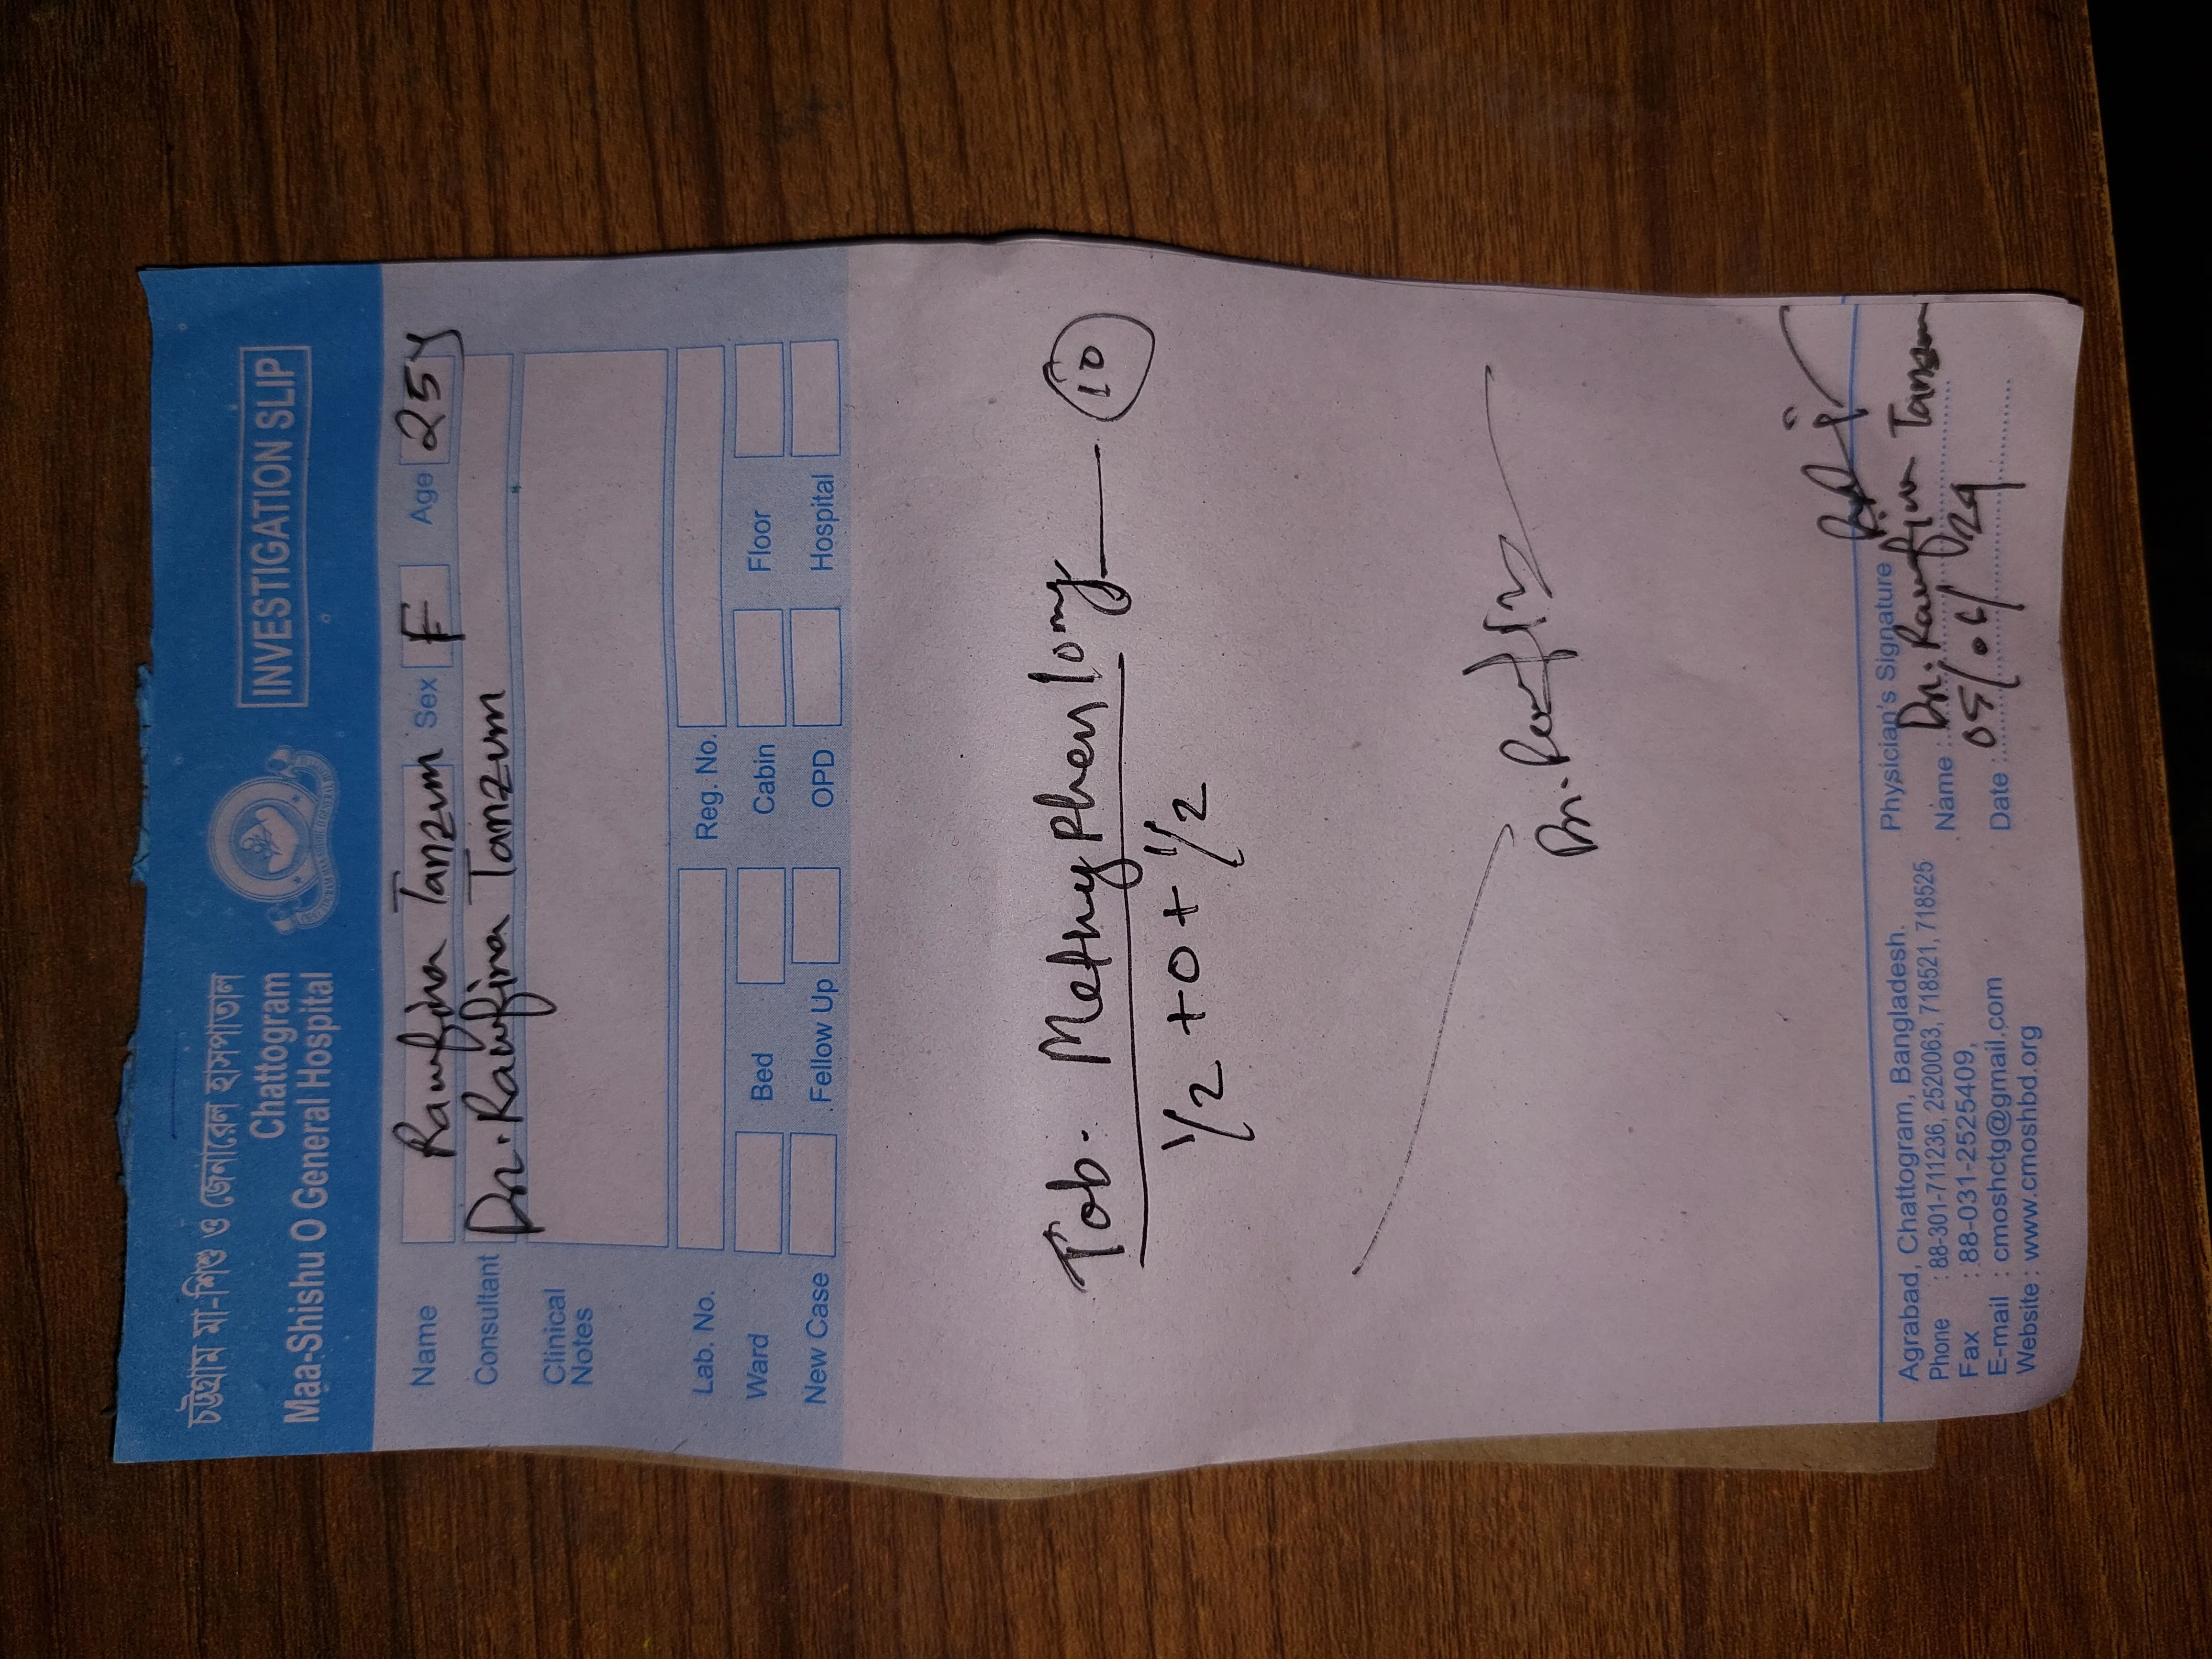 চট্টগ্রাম মা-শিশু ও জেনারেল হাসপাতাল
Chattogram
Maa-Shishu O General Hospital
INVESTIGATION SLIP
Name Raufina Tanzum Sex F Age 25y
Consultant Dr. Raufina Tanzum
Clinical
Notes
Lab. No. Reg. No.
Ward Bed Cabin Floor
New Case Fellow Up OPD Hospital
Tab. Methyphen 10mg — 10
1/2 + 0 + 1/2
Dr.
Agrabad, Chattogram, Bangladesh.
Phone : 88-301-711236, 2520063, 718521, 718525
Fax : 88-031-2525409,
E-mail : cmoshctg@gmail.com
Website : www.cmoshbd.org
Physician's Signature
Name : Dr. Raufina Tanzum
Date : 05/04/24